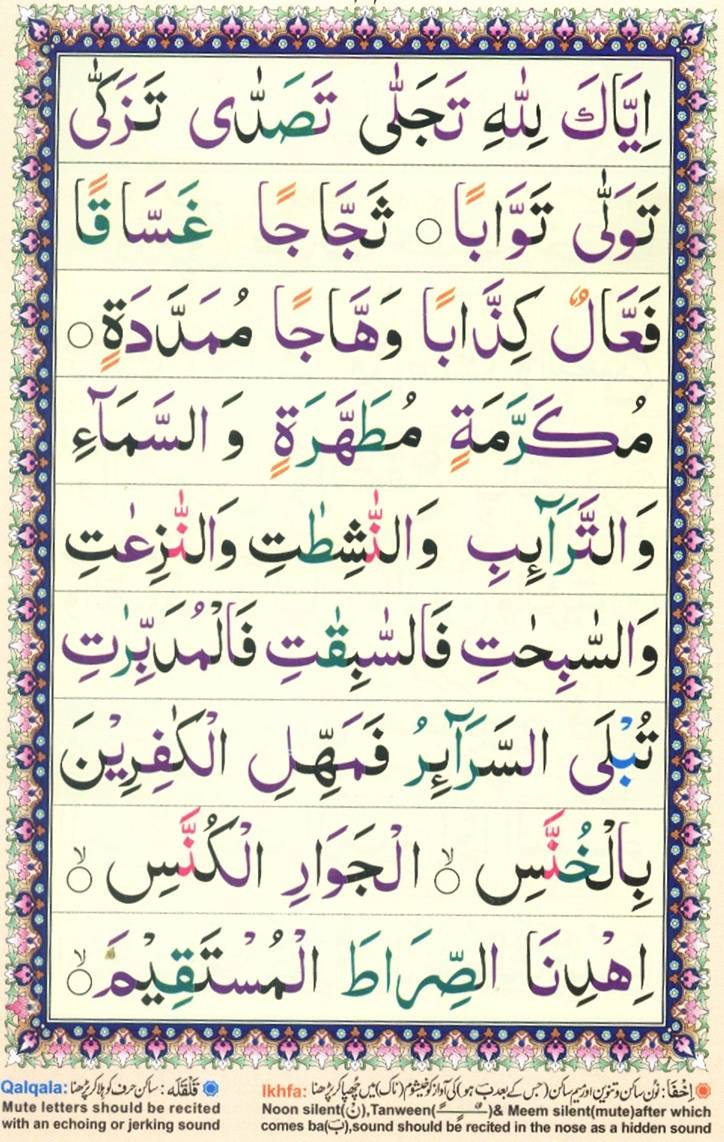 اِيَّاكَ لِلّٰهِ تَجَلّٰى تَصَدّٰى تَزَكّٰى
تَوَلّٰى تَوَّابًا ○ ثَجَّاجًا غَسَّاقًا
فَعَّالٌ كِذَّابًا وَهَّاجًا مُمَدَّدَةٍ ○
مُكَرَّمَةٍ مُطَهَّرَةٍ وَالسَّمَآءِ
وَالتَّرَآئِبِ وَالنّٰشِطٰتِ وَالنّٰزِعٰتِ
وَالسّٰبِحٰتِ فَالسّٰبِقٰتِ فَالْمُدَبِّرٰتِ
تُبْلَى السَّرَآئِرُ فَمَهِّلِ الْكٰفِرِيْنَ
بِالْخُنَّسِ ○ۙ الْجَوَارِ الْكُنَّسِ ○ۙ
اِهْدِنَا الصِّرَاطَ الْمُسْتَقِيْمَ ○ۙ
اِخْفَا: نون ساکن و تنوین اور میم ساکن (جس کے بعد ب ہو) کی آواز کو خیشوم (ناک) میں چھپا کر پڑھنا Ikhfa:
Noon silent(نْ),Tanween(ـًـٍـٌ)& Meem silent(mute)after which
comes ba(بَ),sound should be recited in the nose as a hidden sound
قَلْقَلَه: ساکن حرف کو ہلا کر پڑھنا Qalqala:
Mute letters should be recited
with an echoing or jerking sound